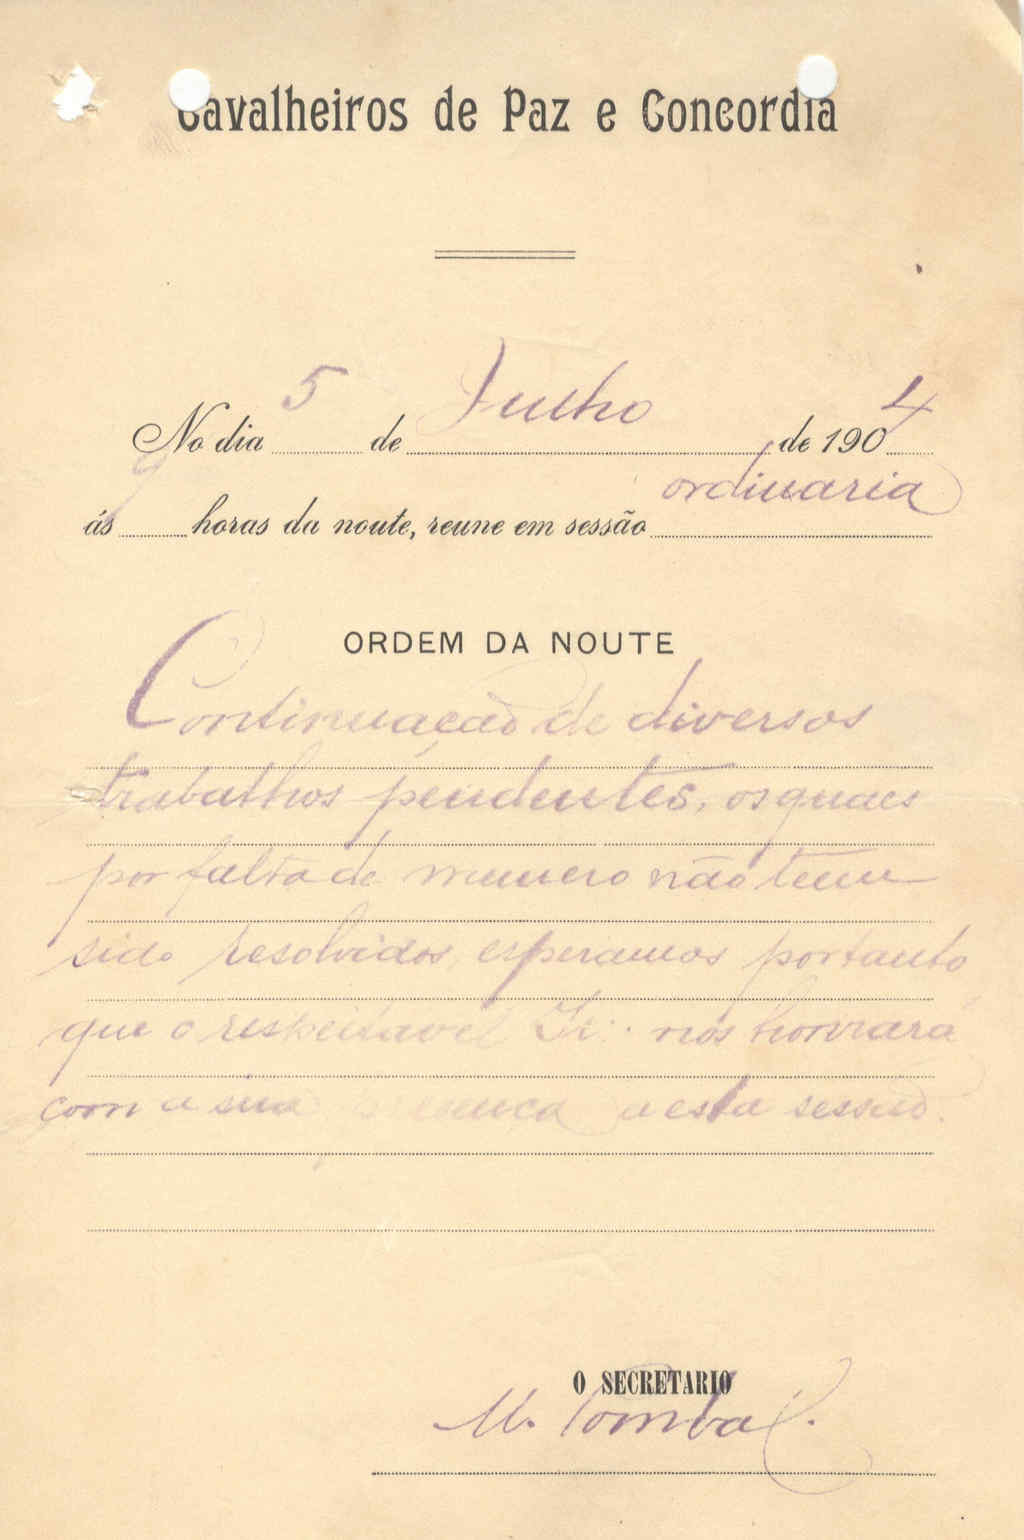 Cavalheiros de Paz e Concordia
No dia 5 de Julho de 1904
ás 9 horas da noute, reune em sessão ordinaria
ORDEM DA NOUTE
Continuação de diversos
trabalhos pendentes, os quaes
por falta de numero não teem
sido resolvidos, esperamos portanto
que o respeitavel Ir∴ nos honrará
com a sua a esta sessão.
O SECRETARIO
M. Pombal.